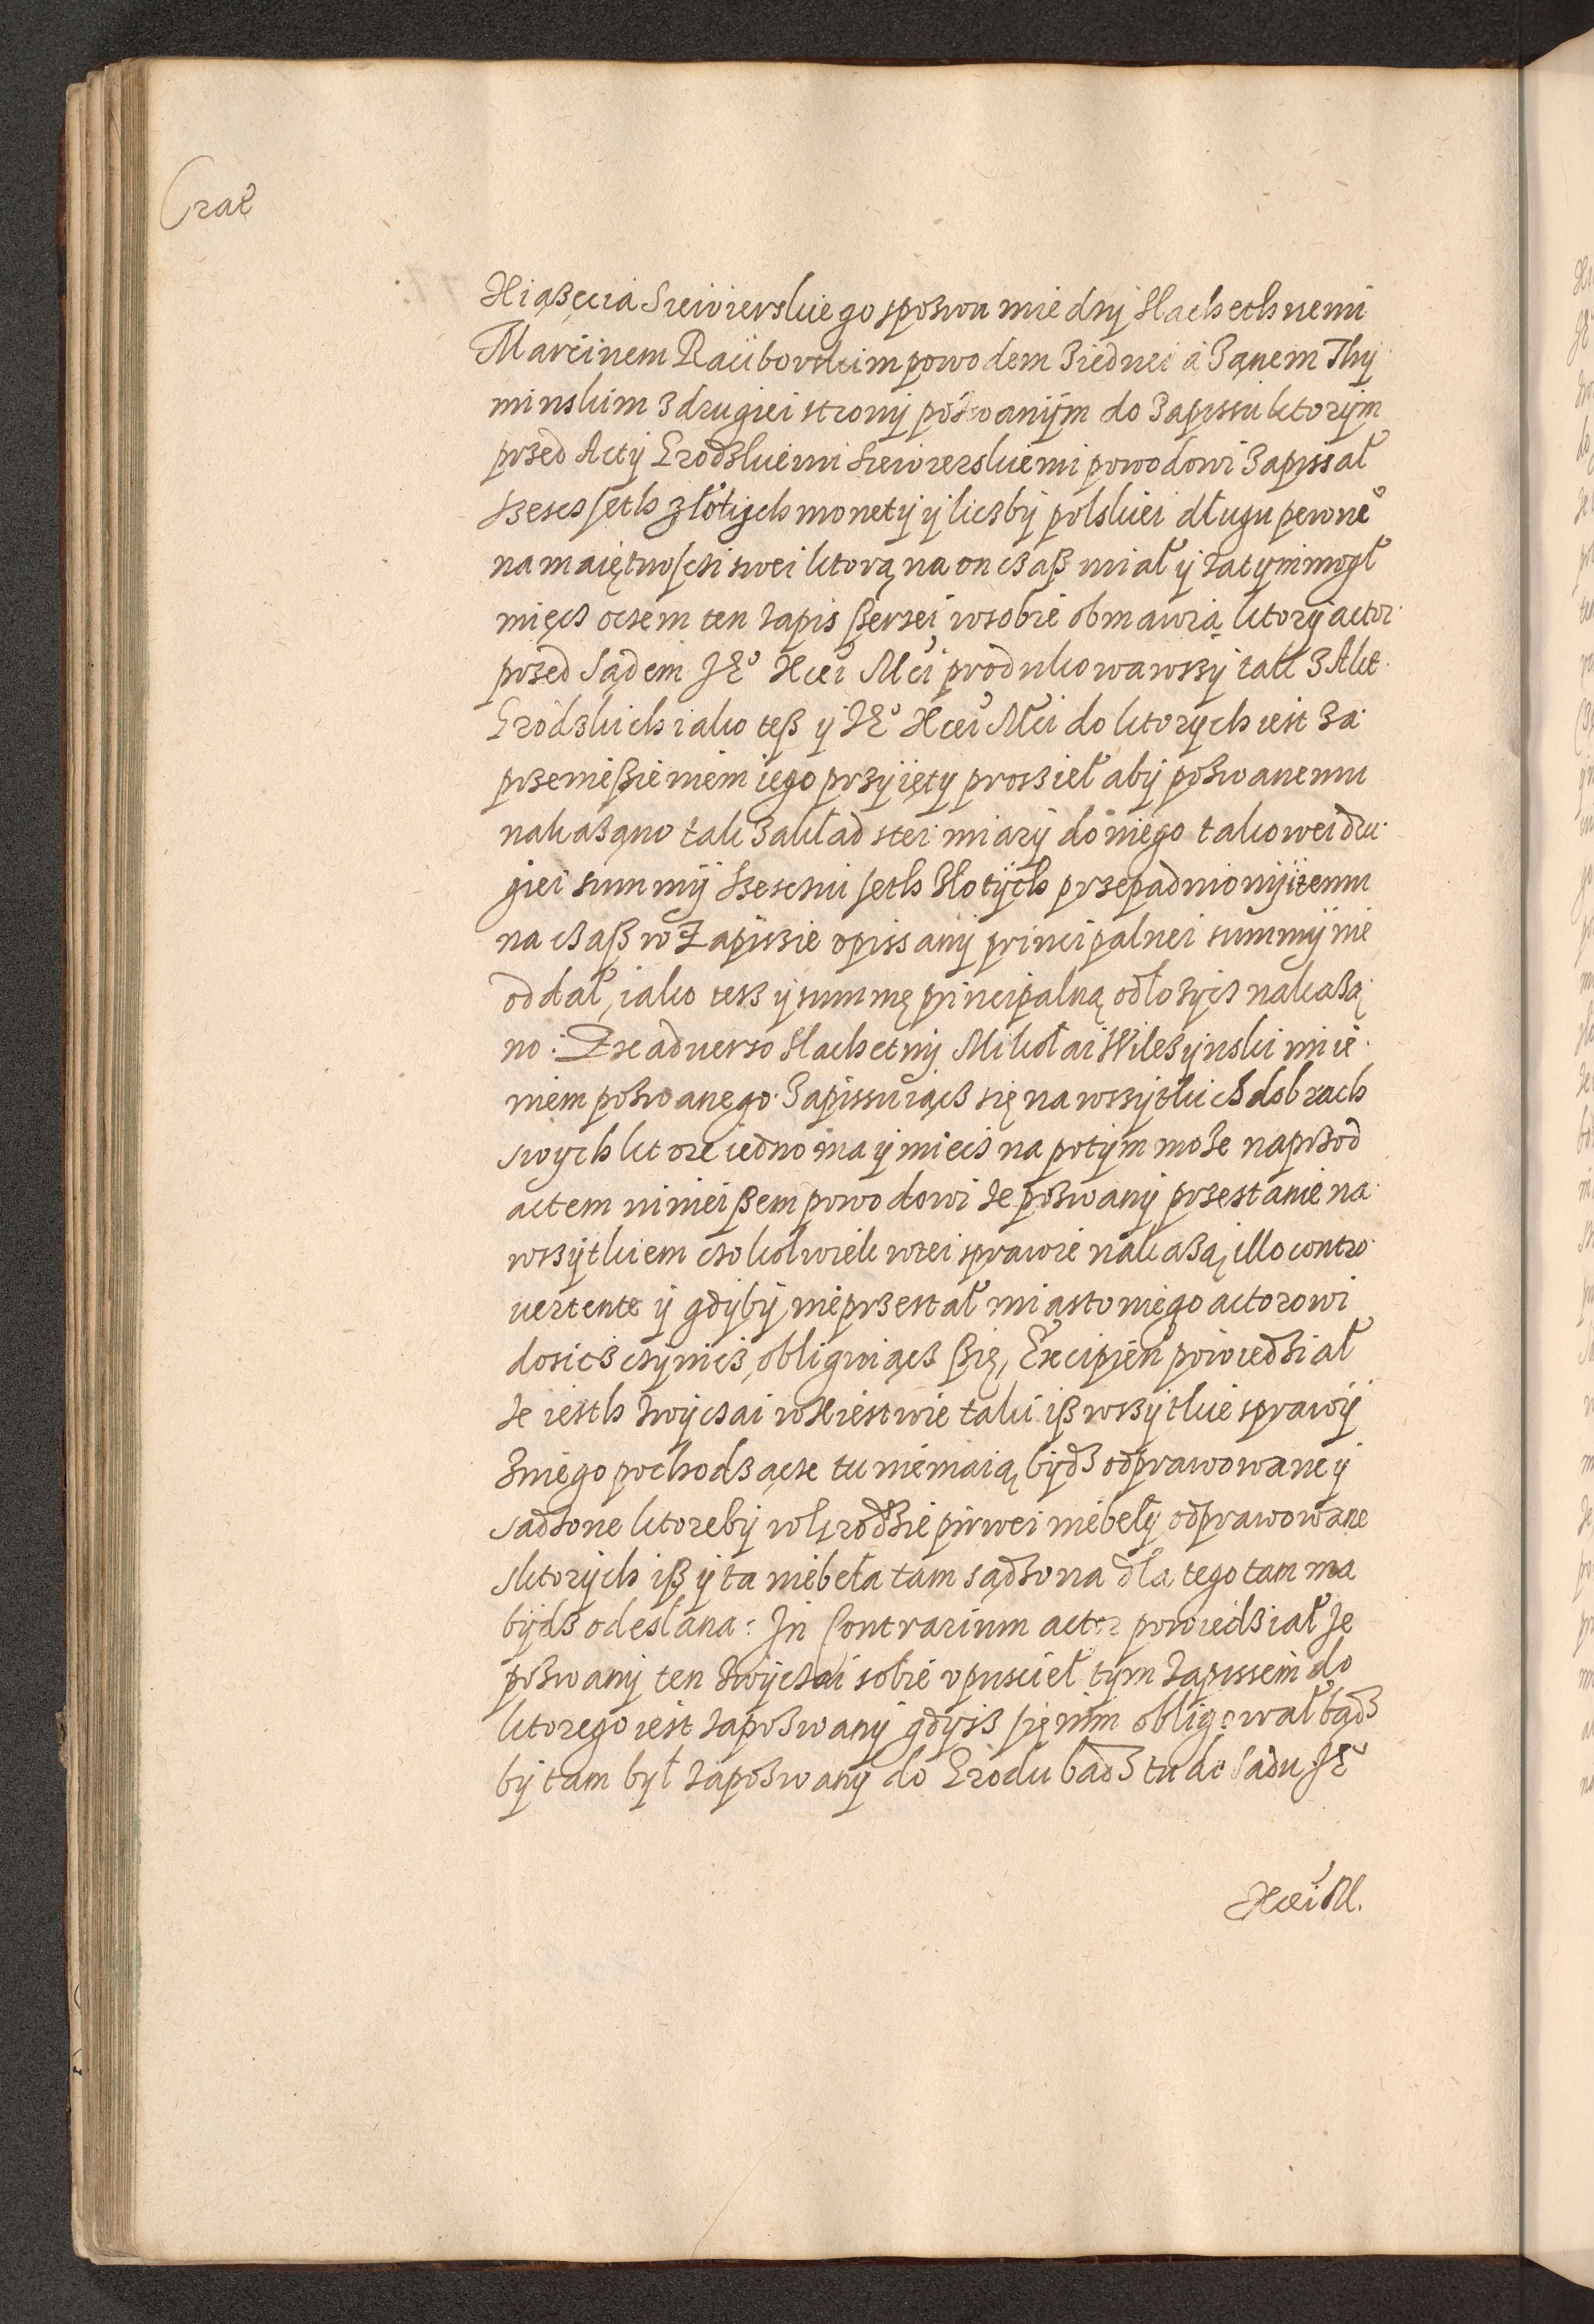 Crac
Xiążęcia Siewierskiego spozwu miedzy Slachethnemi
Marcinem Raciborskim powodem ziednei a Janem Thy
minskim z drugiei strony pozwanijm do zapissu ktorym
przed Acty Grodzkiemi Siewierskiemi powodowi zapissał
szescsseth złotych monety y liczby polskiei długu pewne°
na maiętnosczi swei ktorą na on czasz miał y zatym mogł
miecz oczem ten zapis szerzei wsobie obmawia ktory actor
przed Sądem JE° Xcei Mći produkowawszy tak z Akt
Grodzkich iako tesz y JE° Xcei Mći do ktorych iest za
przeniesieniem iego przyięty prosził aby pozwanemu
nakazano tak zakład stei miary do niego takowei dru
giei summy szesciu seth złotych przepadniony iż emu
na czasz w Zapiszie opissany principalnei summy nie
oddał, iako tesz y summę principalną odłozycz nakaza
no: Ex aduerso Slachetny Mikołai Wilczynski imie
niem pozwanego zapissuiącz się na wszytkich dobrach
swych ktore iedno ma y miecz na potym może naprzod
actem ninieiszem powodowi że pozwany przestanie na
wszytkiem czokolwiek wtei sprawie nakażą, illo contro
uertente y gdyby nieprzestał miasto niego actorowi
dosicz czynicz, obliguiącz szię, Excipien powiedział
że iesth zwyczai w Xiestwie taki isz wszytkie sprawy
zniego pochodzącze tu niemaią bydz odprawowane y
sadzone ktoreby w Grodzie pirwei niebeły odprawowane
sktorych isz y ta niebeła tam sądzona dla tego tam ma
bydz odeslana: In Contrarium actor powiedział że
pozwany ten zwyczai sobie vpuscieł tym zapissem do
ktorego iest zapozwany gdysz się nim obligował badz
by tam był zapozwany do Grodu badz tu do Sadu JE°
Xcei M.